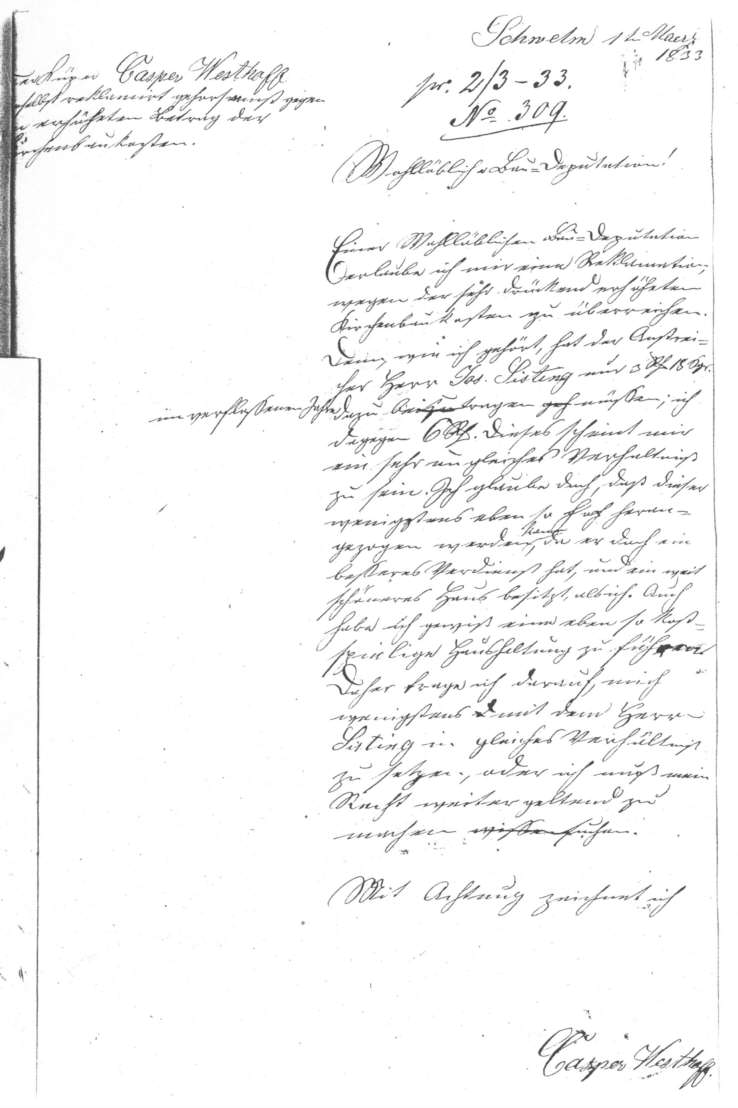 Schwelm 1t. Maerz
1833
pr. 2/3-33.
No. 309.
Der Küper Casper Westhoff
selbst reklamirt gehorsamst gegen
erhöheten Betrag der
Kirchenbaukosten.
Wohllöbliche Bau=Deputation!
Einer Wohllöblichen Bau=Deputation
erlaube ich mir eine Reklamation,
wegen der sehr drückend erhöheten
Kirchenbaukosten zu überreichen.
Denn, wie ich gehört, hat der Anstrei=
cher Herr Jos. Sisting nur 3 Rt 18 Sgr.
im verflossenen Jahre dazu beizutragen müssen; ich
dagegen 6 Rt. Dieses scheint mir
ein sehr ungleiches Verhältniß
zu sein. Ich glaube doch, daß dieser
wenigstens eben so hoch heran=
gezogen werden kann, da er doch ein
besseres Verdienst hat, und ein weit
schöneres Haus besitzt, als ich. Auch
habe ich gewiß eine eben so kost=
spielige Haushaltung zu führen.
Daher trage ich darauf, mich
wenigstens mit dem Herrn
Sisting in gleiches Verhältniß
zu setzen, oder ich muß mein
Recht weiter geltend zu
machen wissen suchen.
Mit Achtung zeichnet ich
Casper Westhoff.